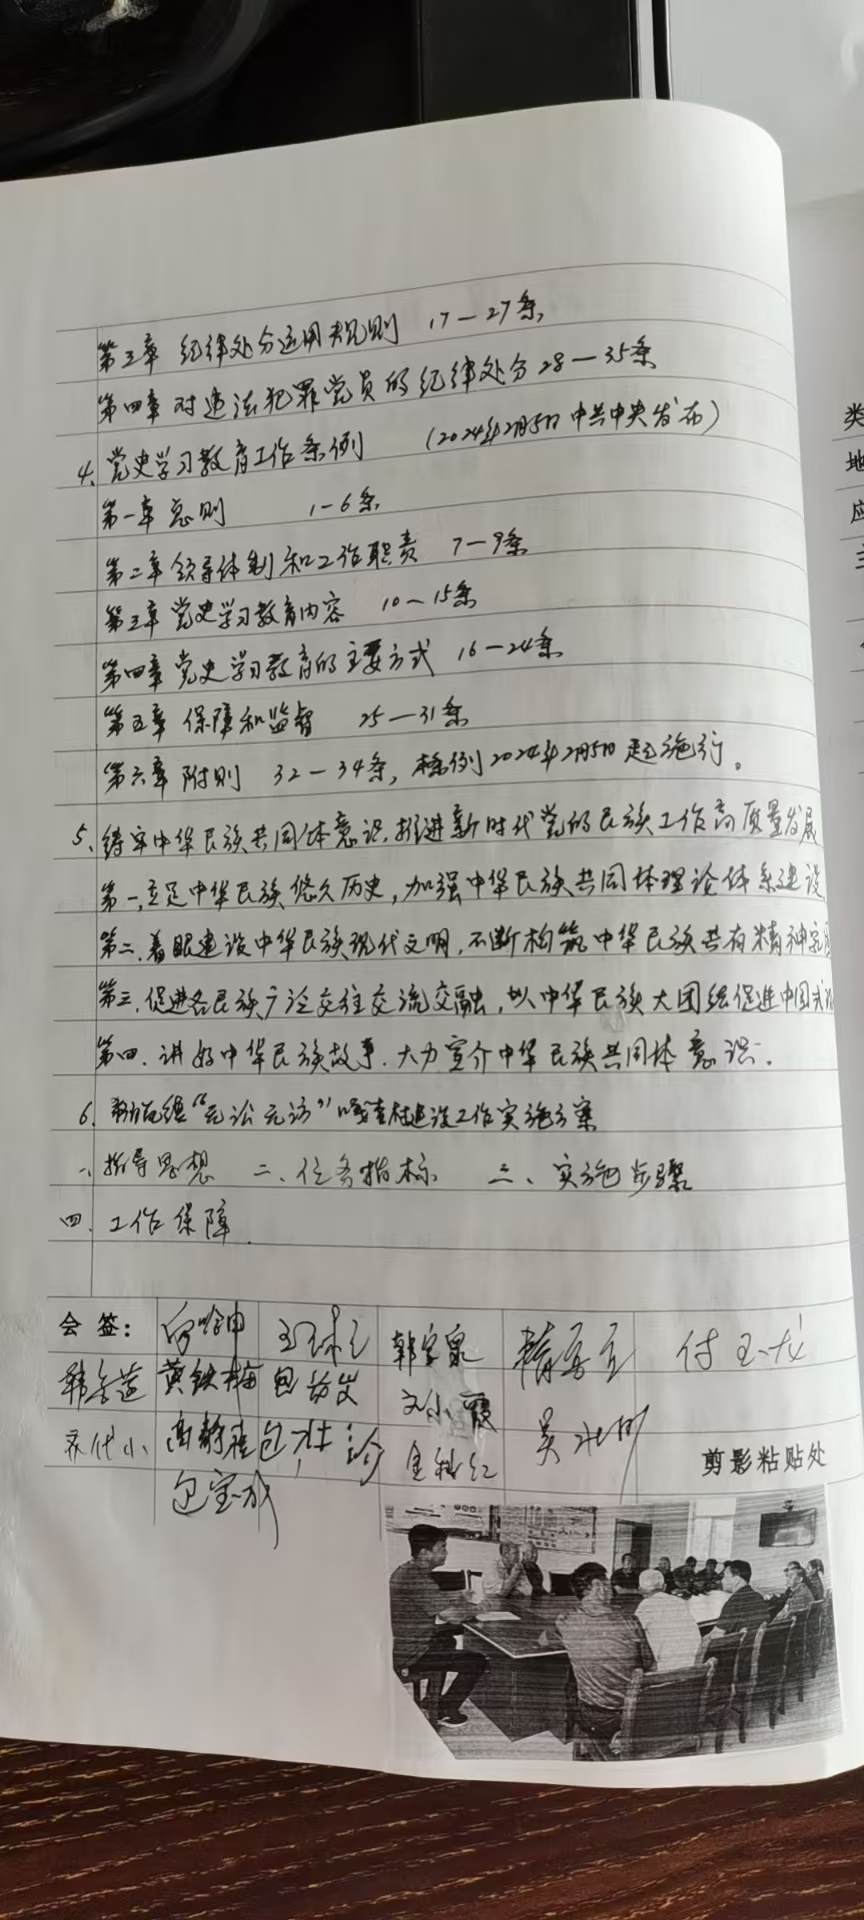 第三章 纪律处分运用规则 17—27条,
第四章 对违法犯罪党员的纪律处分 28—35条
4、党史学习教育工作条例 (2024年2月5日中共中央发布)
第一章 总则 1-6条
第二章 领导体制和工作职责 7—9条
第三章 党史学习教育内容 10—15条
第四章 党史学习教育的主要方式 16—24条
第五章 保障和监督 25—31条
第六章 附则 32—34条, 条例2024年2月5日起施行。
5、铸牢中华民族共同体意识,推进新时代党的民族工作高质量发展
第一,立足中华民族悠久历史,加强中华民族共同体理论体系建设
第二、着眼建设中华民族现代文明,不断构筑中华民族共有精神家园
第三,促进各民族广泛交往交流交融,以中华民族大团结促进中国式
第四、讲好中华民族故事、大力宣介中华民族共同体意识.
6、"无讼无访"嘎查村建设工作实施方案
一、指导思想 二、任务指标 三、实施步骤
四、工作保障
会 签: 付玉龙
黄铁梅 文小霞
包宝成
剪影粘贴处
类
地
应